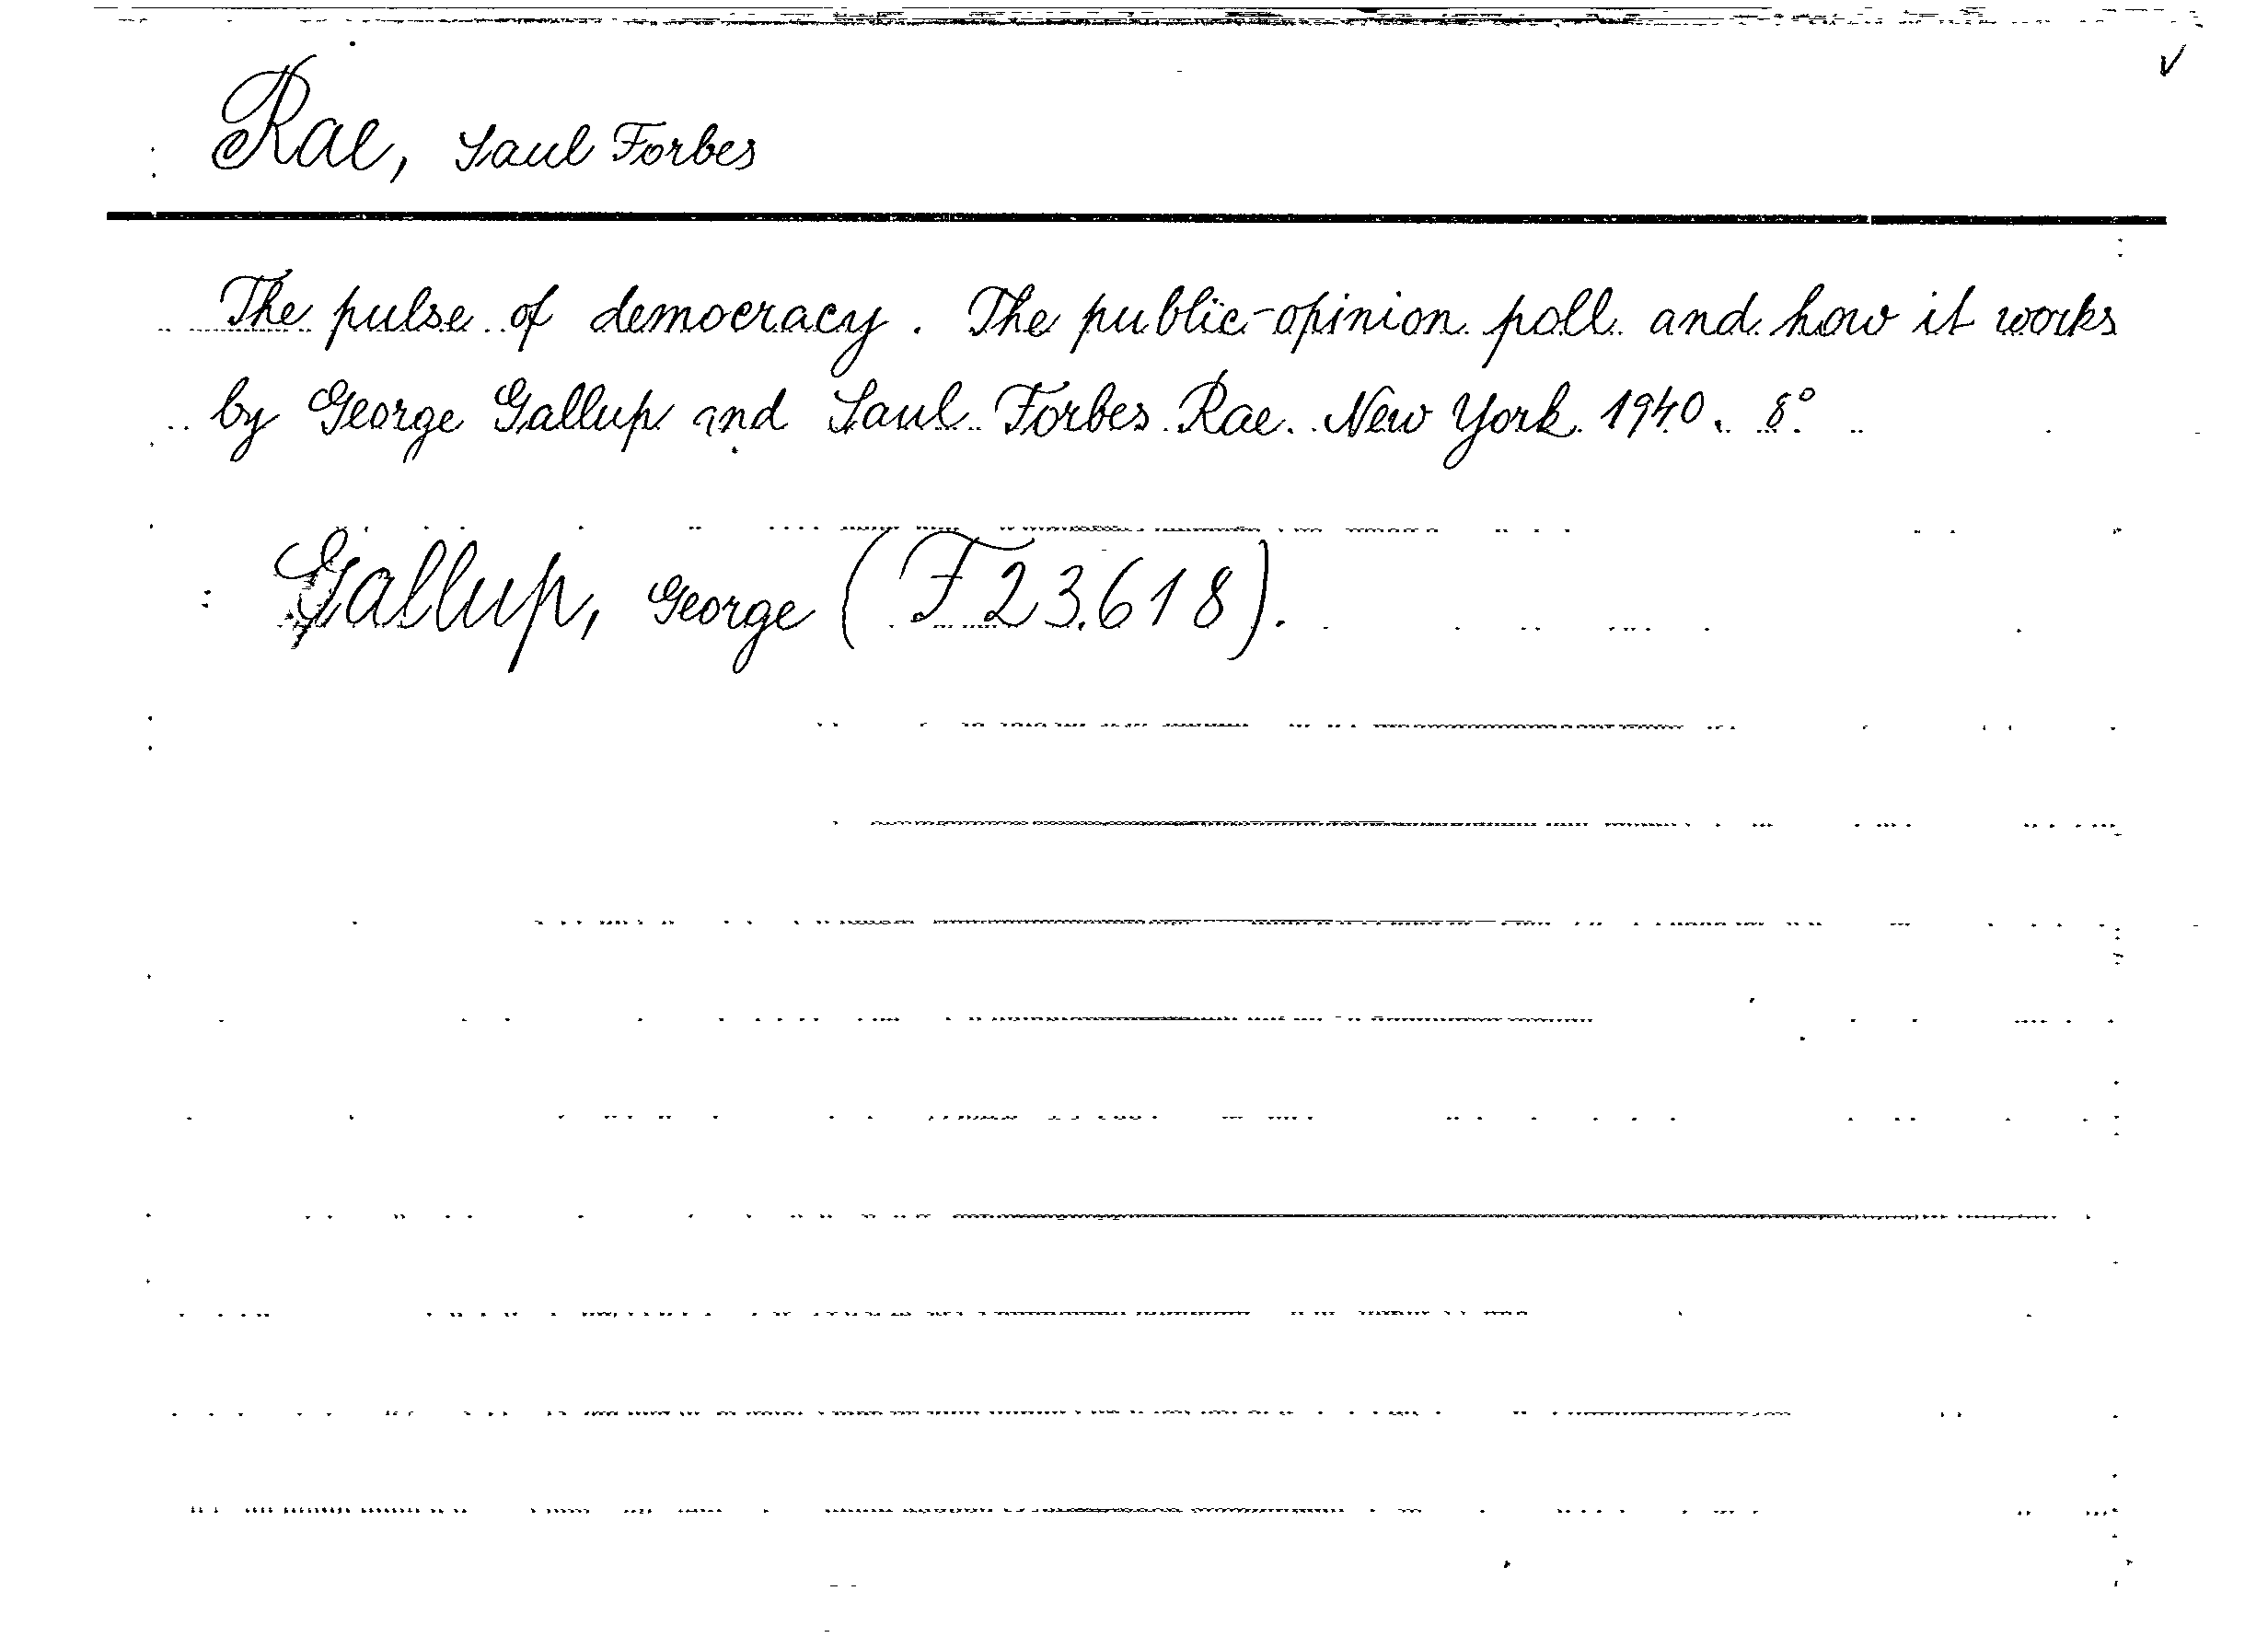 Rae, Saul Forbes
The pulse of democracy. The public-opinion poll and how it works
by George Gallup and Saul Forbes Rae. New York 1940. 8°
Gallup, George (F 23.618).